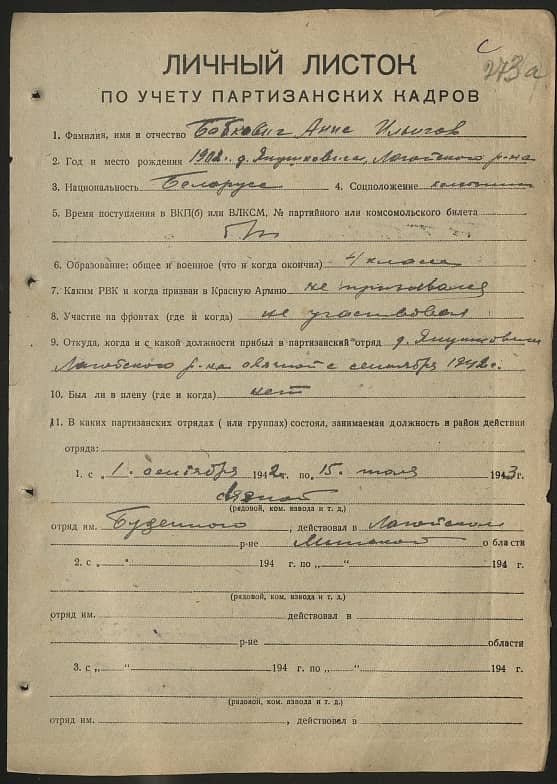 с
273а
ЛИЧНЫЙ ЛИСТОК
ПО УЧЕТУ ПАРТИЗАНСКИХ КАДРОВ
1. Фамилия, имя и отчество Бабкович Анис Ильичов
2. Год и место рождения 1902 г. д. Янушковичи, Логойского р-на
3. Национальность Белорус 4. Соцположение
5. Время поступления в ВКП(б) или ВЛКСМ, № партийного или комсомольского билета
б/п
6. Образование: общее и военное (что и когда окончил) 4 класса
7. Каким РВК и когда призван в Красную Армию не призывался
8. Участие на фронтах (где и когда) не участвовал
9. Откуда, когда и с какой должности прибыл в партизанский отряд д. Янушковичи
Логойского р-на связной с сентября 1942 г.
10. Был ли в плену (где и когда) нет
11. В каких партизанских отрядах ( или группах) состоял, занимаемая должность и район действия
отряда:
1. с „ 1. сентября 1942 г. по „ 15. июля 1943 г.
связной
(рядовой, ком. взвода и т. д.)
отряд им. Буденного, действовал в Логойском
р-не Минской области
2. с „ “ 194 г. по „ “ 194 г.
(рядовой, ком. взвода и т. д.)
отряд им. действовал в
р-не области
3. с „ “ 194 г. по „ “ 194 г.
(рядовой, ком. взвода и т. д.)
отряд им. , действовал в